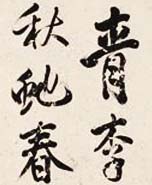 青李
秋虵春